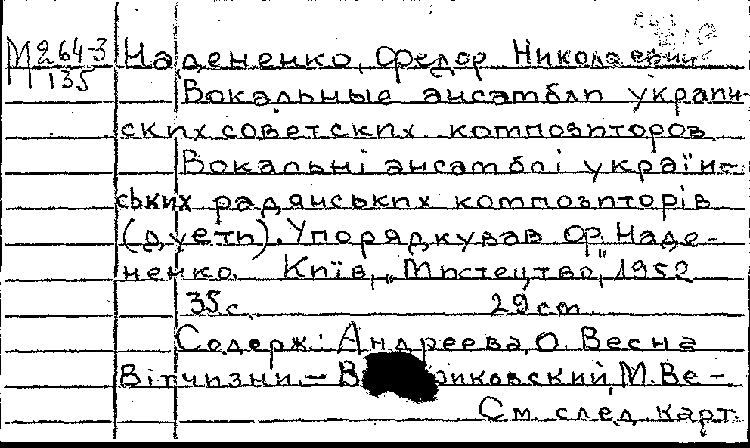 М 264-3 Надененко, Федор Николаевич
135
Вокальные ансамбли украин-
ских советских композиторов
Вокальні ансамблі україн-
ських радянських композиторів
(дуети). Упорядкував Ф. Наде-
ненко. Київ, „Мистецтво", 1952
35 с. 29 cm.
Содерж.: Андреева, О. Весна
Вітчизни. – М. Ве-
См. след. карт.